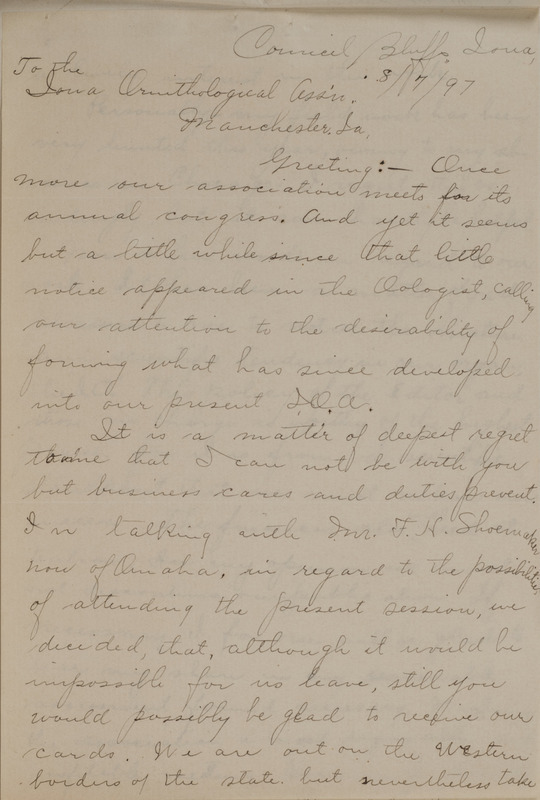 Council Bluffs Iowa,
8/17/97
To the
Iowa Ornithological Ass'n.
Manchester, Ia.
Greeting:— Once
more our association meets for its
annual congress. And yet it seems
but a little while since that little
notice appeared in the Oologist, calling
our attention to the desirability of
forming what has since developed
into our present I.O.A.
It is a matter of deepest regret
to me that I can not be with you
but business cares and duties prevent.
In talking with Mr. F. H. Shoemaker
now of Omaha, in regard to the possibilities
of attending the present session, we
decided, that, although it would be
impossible for us leave, still you
would possibly be glad to receive our
cards. We are out on the Western
borders of the state but nevertheless take